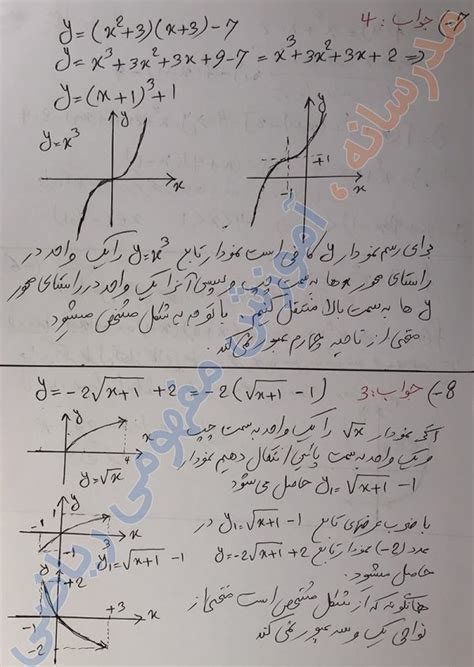 7- جواب: 4
y=(x²+3)(x+3)-7
y=x³+3x²+3x+9-7=x³+3x²+3x+2 ⇒
y=(x+1)³+1
y=x³
y
x
y
+1
-1
x
برای رسم نمودار y کافی است نمودار تابع y=x³ را یک واحد در
راستای محور xها به سمت چپ و سپس آنرا یک واحد در راستای محور
yها به سمت بالا منتقل کنیم. با توجه به شکل مشخص میشود
منحنی از ناحیه چهارم عبور نمی‌کند.
8- جواب: 3
y=-2√x+1 +2=-2(√x+1 -1)
اگر نمودار √x را یک واحد به سمت چپ
و یک واحد به سمت پائین انتقال دهیم نمودار
y₁=√x+1 -1 حاصل می‌شود
y
x
4
y=√x
با ضرب عرضهای تابع y₁=√x+1 -1 در
عدد (-2) نمودار تابع y=-2√x+1 +2
حاصل میشود.
y
1
-1
-1
x
y₁=√x+1 -1
همانگونه که از شکل مشخص است منحنی از
نواحی یک و سه عبور نمی کند
+2
+3
-1
-2
x
مدرسانه، آموزش مفهومی ریاضی